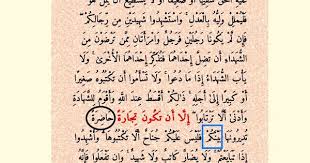 عليه الحق سفيها أو ضعيفا أو لا يستطيع أن يمل هو
فَلْيُمْلِلْ وَلِيُّهُ بِالْعَدْلِ ۚ وَاسْتَشْهِدُوا شَهِيدَيْنِ مِن رِّجَالِكُمْ ۖ
فَإِن لَّمْ يَكُونَا رَجُلَيْنِ فَرَجُلٌ وَامْرَأَتَانِ مِمَّن تَرْضَوْنَ مِنَ
الشُّهَدَاءِ أَن تَضِلَّ إِحْدَاهُمَا فَتُذَكِّرَ إِحْدَاهُمَا الْأُخْرَىٰ ۚ وَلَا يَأْبَ
الشُّهَدَاءُ إِذَا مَا دُعُوا ۚ وَلَا تَسْأَمُوا أَن تَكْتُبُوهُ صَغِيرًا
أَوْ كَبِيرًا إِلَىٰ أَجَلِهِ ۚ ذَٰلِكُمْ أَقْسَطُ عِندَ اللَّهِ وَأَقْوَمُ لِلشَّهَادَةِ
وَأَدْنَىٰ أَلَّا تَرْتَابُوا ۖ إِلَّا أَن تَكُونَ تِجَارَةً حَاضِرَةً
تُدِيرُونَهَا بَيْنَكُمْ فَلَيْسَ عَلَيْكُمْ جُنَاحٌ أَلَّا تَكْتُبُوهَا ۗ وَأَشْهِدُوا
إِذَا تَبَايَعْتُمْ ۚ وَلَا يُضَارَّ كَاتِبٌ وَلَا شَهِيدٌ ۚ وَإِن تَفْعَلُوا فَإِنَّهُ